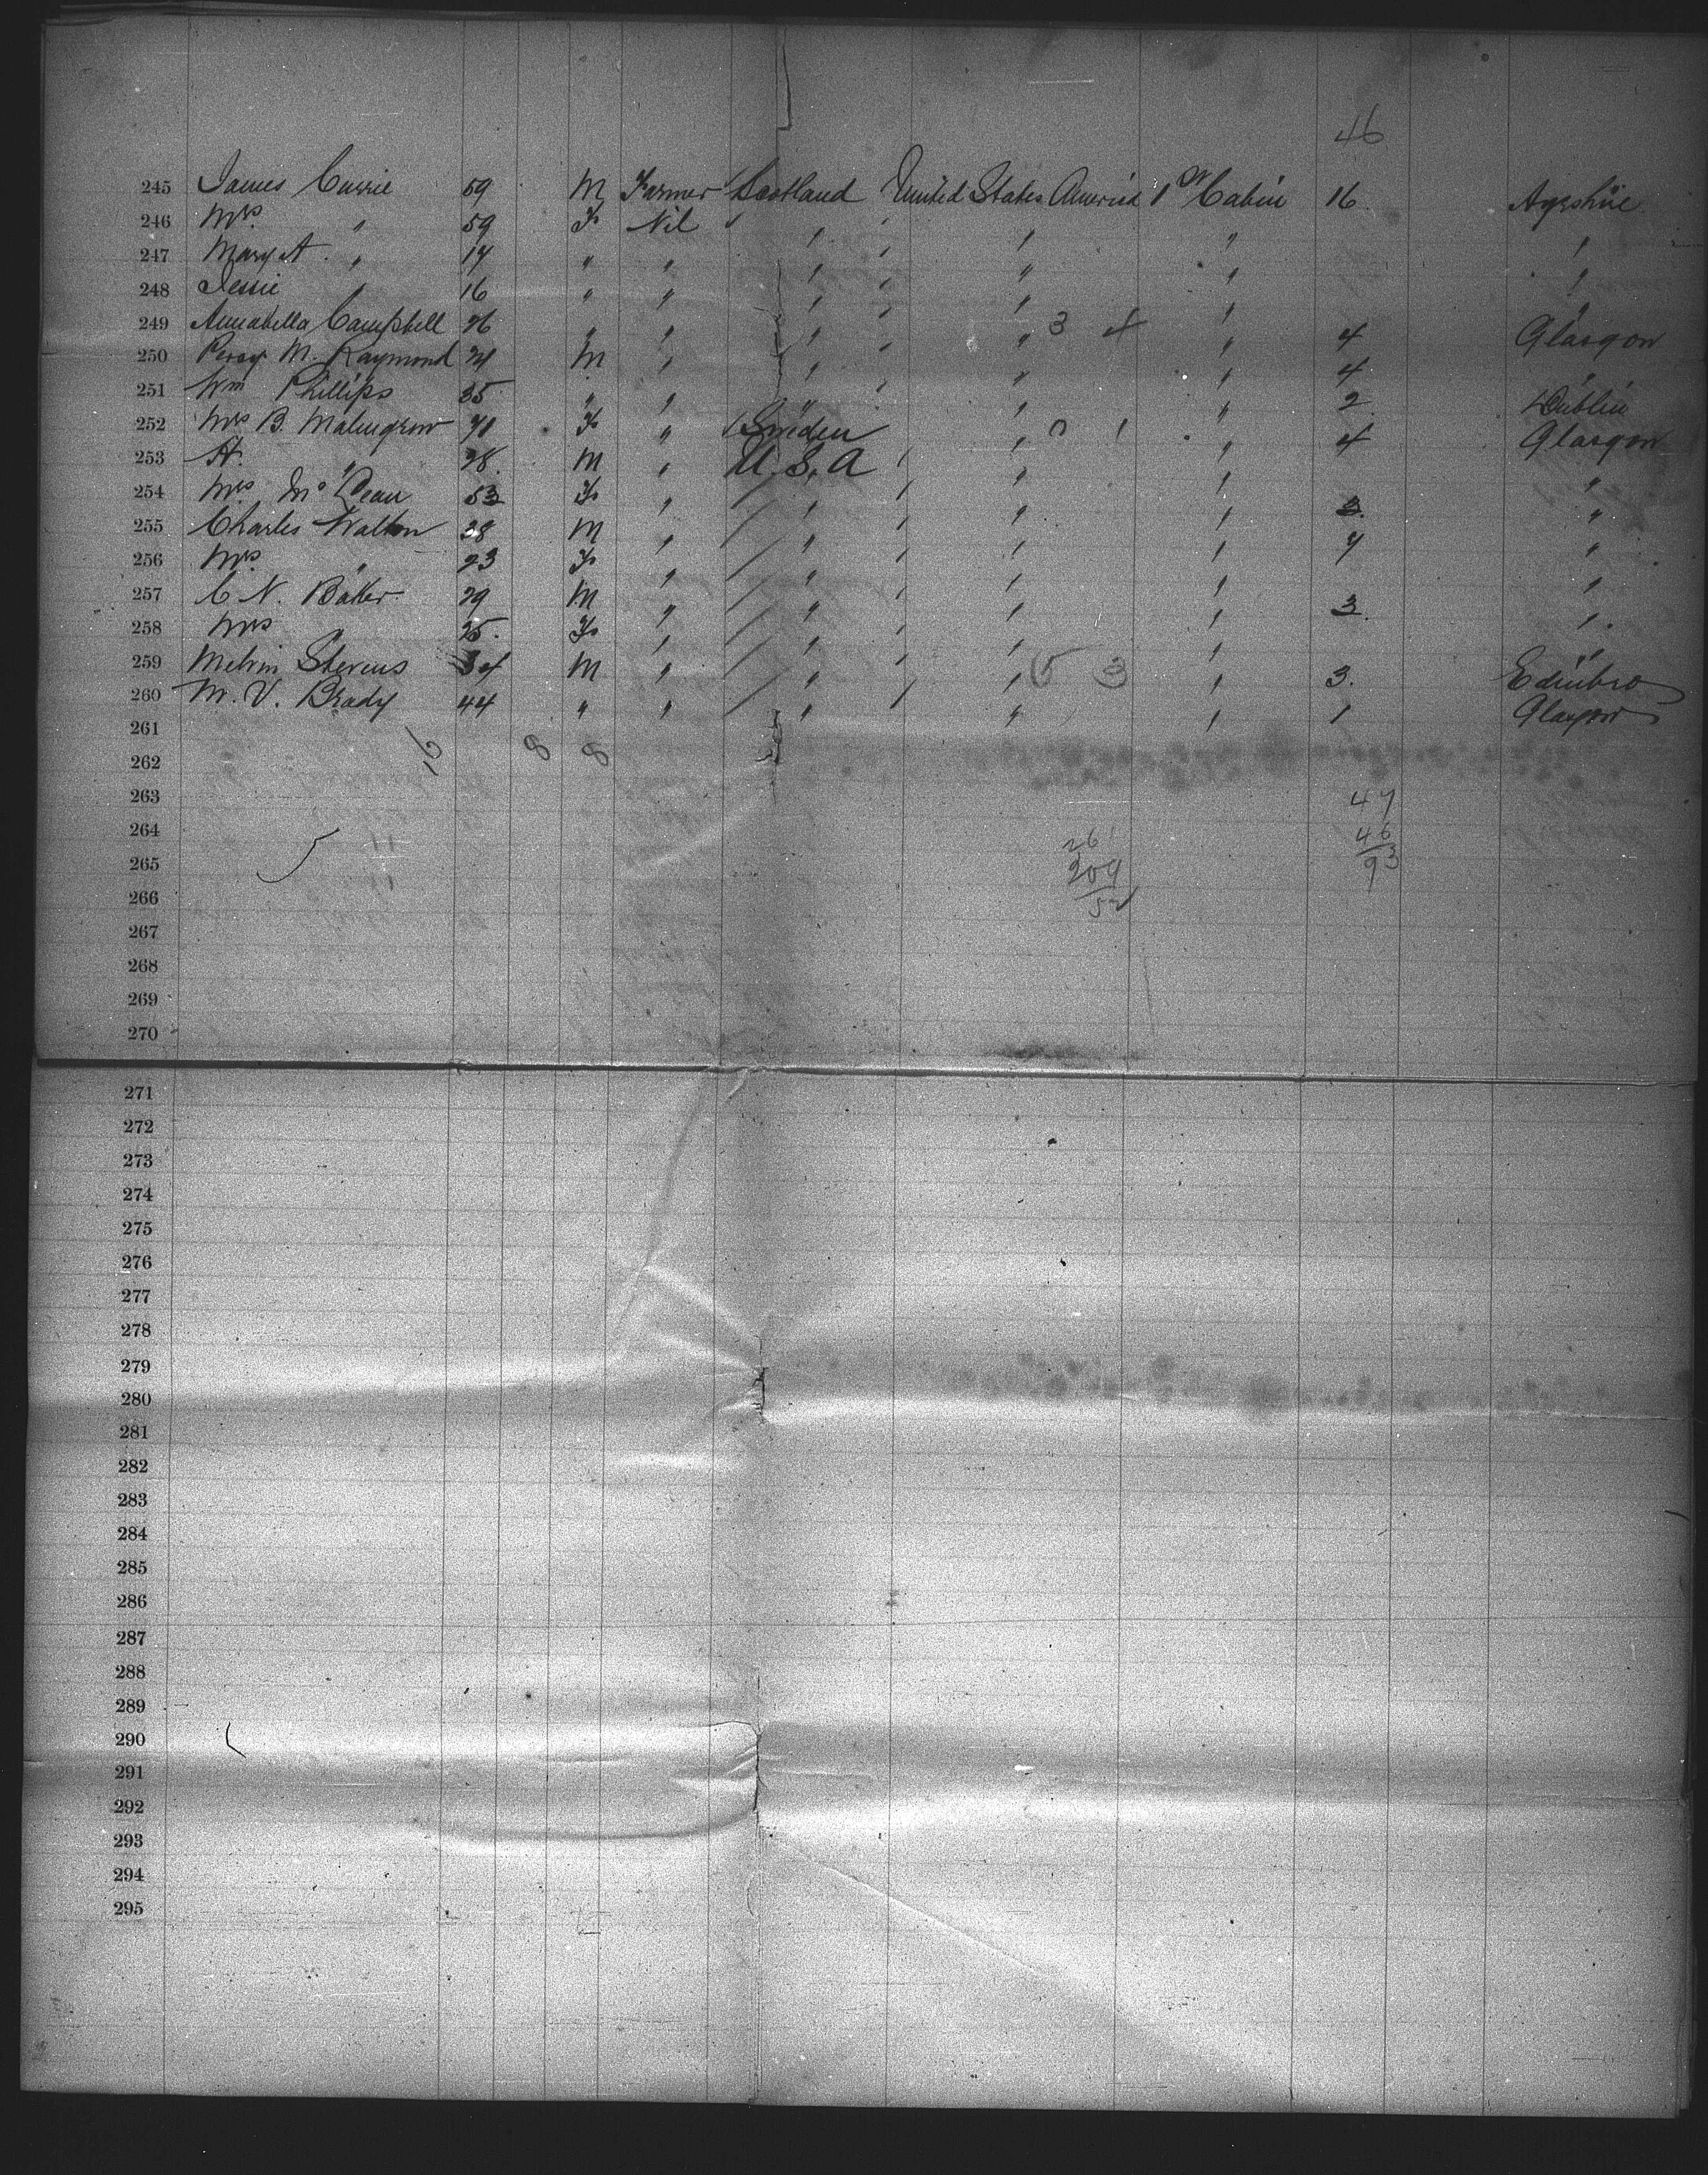 46
245 James Currie 59 M Farmer Scotland United States America 1st Cabin 16 Ayrshire
246 Mrs " 59 F Nil " " " " "
247 Mary A. " 14 " " " " " " "
248 Jessie " 16 " " " " " " "
249 Annabella Campbell 26 " " " " " 3 4 " 4 Glasgow
250 Percy M. Raymond 21 M " " " " " 4 "
251 Wm Phillips 35 " " " " " " 2 Dublin
252 Mrs B. Malmgrow F " Sweden " 0 1 " 4 Glasgow
253 A. " 28. M " U.S.A " " " "
254 Mrs McLean 53 F " " " " " 3. "
255 Charles Walton 28 M " " " " " "
256 Mrs " 23 F " " " " " "
257 C N. Baker 29 M " " " " " 3. "
258 Mrs " 25. F " " " " " "
259 Melvin Stevens 34 M " " " " 5 3 " 3. Edinbro
260 M. V. Brady 44 " " " " " " 1 Glasgow
261 16 8 8
262
263 47
264 26 46
265 209 93
266 52
267
268
269
270
271
272
273
274
275
276
277
278
279
280
281
282
283
284
285
286
287
288
289
290
291
292
293
294
295